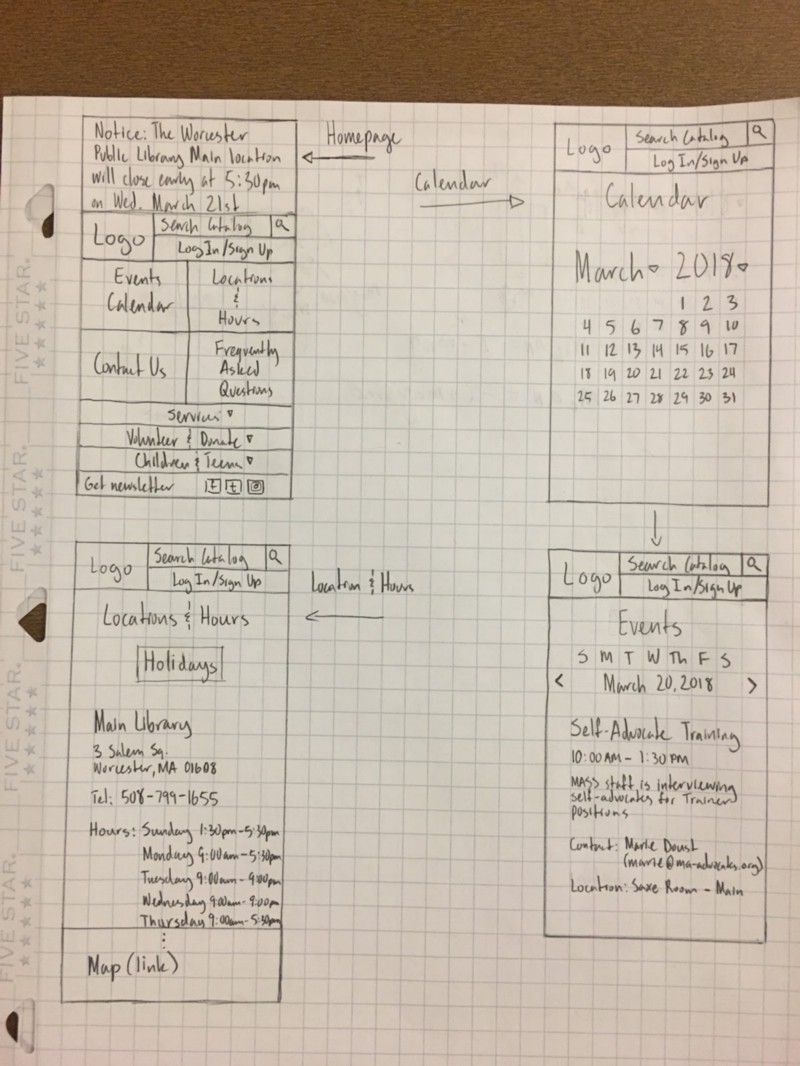 Notice: The Worcester
Public Library Main location
will close early at 5:30pm
on Wed. March 21st
Logo
Search Catalog
Log In/Sign Up
Events
Calendar
Locations
&
Hours
Contact Us
Frequently
Asked
Questions
Services
Volunteer & Donate
Children & Teens
Get newsletter
Homepage
Calendar
Logo
Search Catalog
Log In/Sign Up
Calendar
March 2018
1 2 3
4 5 6 7 8 9 10
11 12 13 14 15 16 17
18 19 20 21 22 23 24
25 26 27 28 29 30 31
Logo
Search Catalog
Log In/Sign Up
Locations & Hours
Holidays
Main Library
3 Salem Sq.
Worcester, MA 01608
Tel: 508-799-1655
Hours: Sunday 1:30pm-5:30pm
Monday 9:00am-5:30pm
Tuesday 9:00am-9:00pm
Wednesday 9:00am-9:00pm
Thursday 9:00am-5:30pm
Map (link)
Location & Hours
Logo
Search Catalog
Log In/Sign Up
Events
S M T W Th F S
< March 20, 2018 >
Self-Advocate Training
10:00AM - 1:30PM
MASS staff is interviewing
self-advocates for Trainer
positions
Contact: Marie Doust
(marie@ma-advocates.org)
Location: Saxe Room - Main
FIVE STAR.
FIVE STAR.
FIVE STAR.
FIVE STAR.